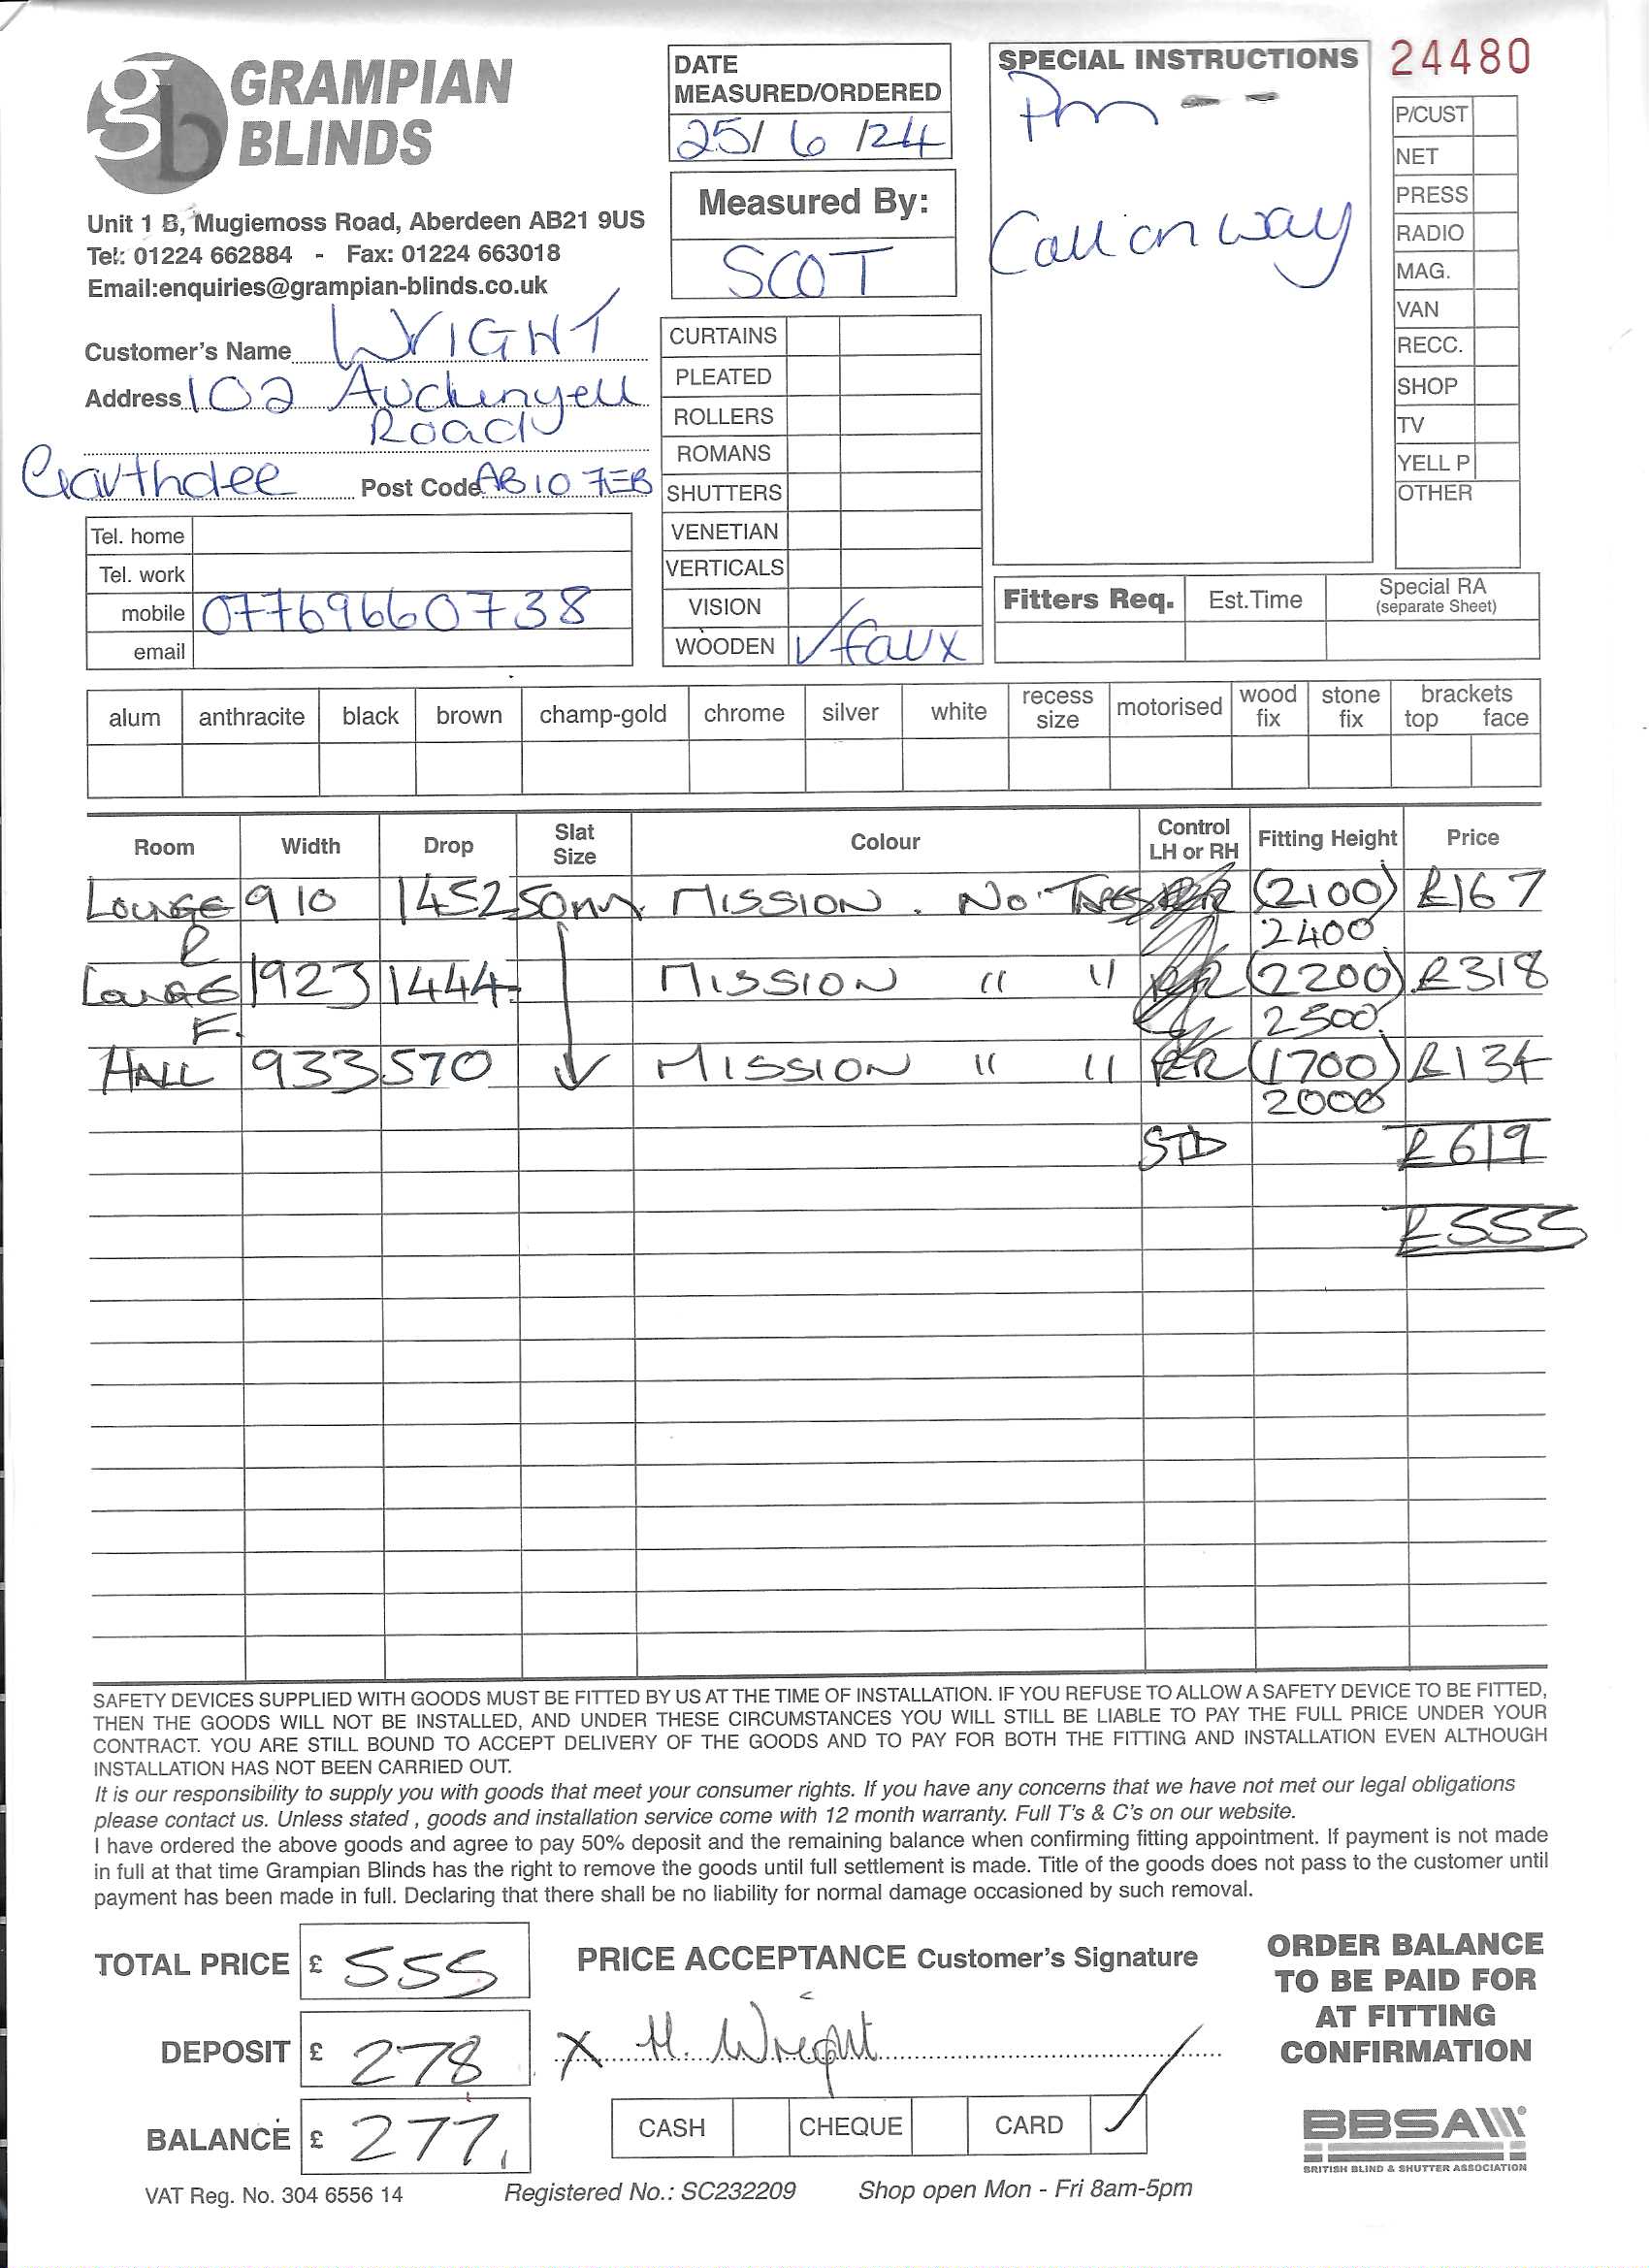 gb GRAMPIAN BLINDS
Unit 1 B, Mugiemoss Road, Aberdeen AB21 9US
Tel: 01224 662884 - Fax: 01224 663018
Email:enquiries@grampian-blinds.co.uk
Customer's Name WRIGHT
Address 102 Auchinyell
Road
Garthdee Post Code AB10 7EB
Tel. home
Tel. work
mobile 07769660738
email
DATE
MEASURED/ORDERED
25/6/24
Measured By:
SCOT
CURTAINS
PLEATED
ROLLERS
ROMANS
SHUTTERS
VENETIAN
VERTICALS
VISION
WOODEN ✓ faux
SPECIAL INSTRUCTIONS
Pm --
Call on way
24480
P/CUST
NET
PRESS
RADIO
MAG.
VAN
RECC.
SHOP
TV
YELL P
OTHER
Fitters Req. Est.Time Special RA (separate Sheet)
alum anthracite black brown champ-gold chrome silver white recess size motorised wood fix stone fix brackets top face
Room Width Drop Slat Size Colour Control LH or RH Fitting Height Price
LOUNGE 910 1452 50mm MISSION. No (2100) £167
R 2400
LOUNGE 1923 1444 MISSION " " (2200) £318
F. 2500
HALL 933 570 MISSION " " RR (1700) £134
2000
STD £619
£555
SAFETY DEVICES SUPPLIED WITH GOODS MUST BE FITTED BY US AT THE TIME OF INSTALLATION. IF YOU REFUSE TO ALLOW A SAFETY DEVICE TO BE FITTED,
THEN THE GOODS WILL NOT BE INSTALLED, AND UNDER THESE CIRCUMSTANCES YOU WILL STILL BE LIABLE TO PAY THE FULL PRICE UNDER YOUR
CONTRACT. YOU ARE STILL BOUND TO ACCEPT DELIVERY OF THE GOODS AND TO PAY FOR BOTH THE FITTING AND INSTALLATION EVEN ALTHOUGH
INSTALLATION HAS NOT BEEN CARRIED OUT.
It is our responsibility to supply you with goods that meet your consumer rights. If you have any concerns that we have not met our legal obligations
please contact us. Unless stated , goods and installation service come with 12 month warranty. Full T's & C's on our website.
I have ordered the above goods and agree to pay 50% deposit and the remaining balance when confirming fitting appointment. If payment is not made
in full at that time Grampian Blinds has the right to remove the goods until full settlement is made. Title of the goods does not pass to the customer until
payment has been made in full. Declaring that there shall be no liability for normal damage occasioned by such removal.
TOTAL PRICE £ 555
DEPOSIT £ 278
BALANCE £ 277
PRICE ACCEPTANCE Customer's Signature
X H. Wright
CASH CHEQUE CARD ✓
ORDER BALANCE
TO BE PAID FOR
AT FITTING
CONFIRMATION
BBSA
BRITISH BLIND & SHUTTER ASSOCIATION
VAT Reg. No. 304 6556 14 Registered No.: SC232209 Shop open Mon - Fri 8am-5pm